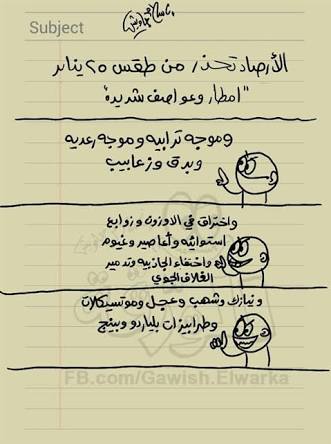 إسلام جاويش
Subject
الأرصاد تحذر من طقس ٢٥ يناير
"امطار وعواصف شديدة"
وموجه ترابيه وموجه رعديه
وبرق وزعابيب
واختراق في الاوزون وزوابع
استوائيه وأعاصير وغيوم
واختفاء الجاذبيه وتدمير
الغلاف الجوي
ونيازك وشهب وعجل وموتسيكلات
وطرابيزات بلياردو وبينج
FB.com/Gawish.Elwarka